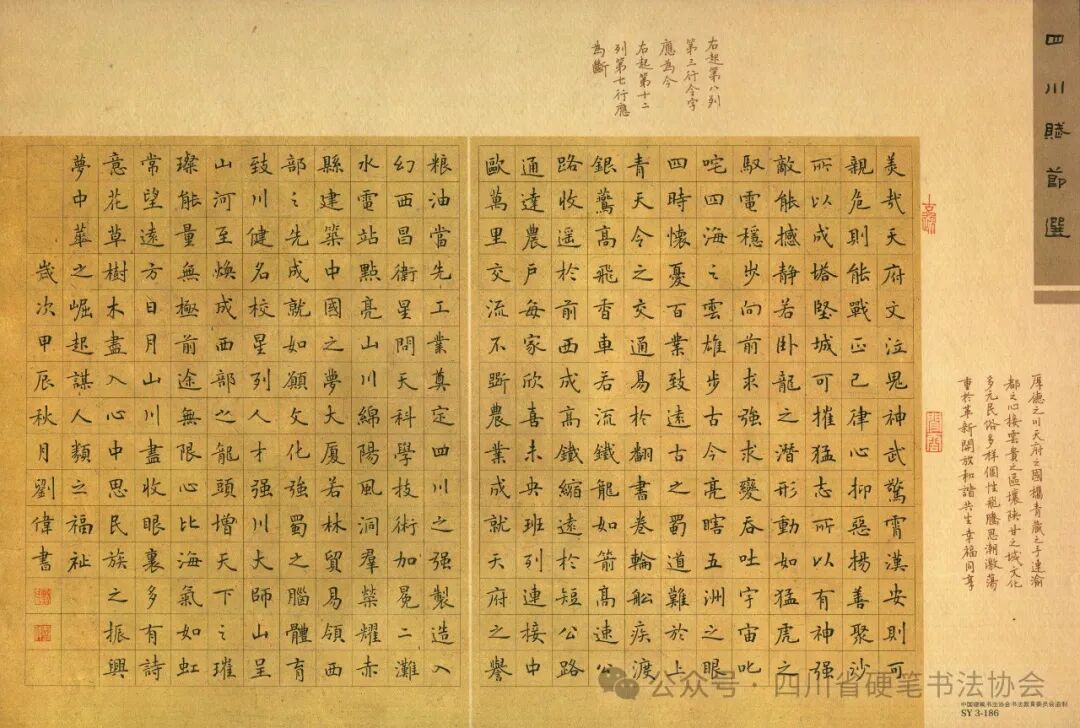 四川賦節選
厚德之川天府之國攜青藏之手連渝
都之心接雲貴之區壤陝甘之域文化
多元民俗多样個性飛騰思潮激蕩
重於革新開放和諧共生幸福同享
右起第八列
第三行令字
應為今
右起第十二
列第七行應
為斷
美哉天府文泣鬼神武驚霄漢安則可
親危則能戰正己律心抑惡揚善聚沙
所以成塔堅城可摧猛志所以有神强
敵能撼靜若卧龍之潛形動如猛虎之
馭電穩步向前求強求變吞吐宇宙叱
咤四海之雲雄步古今亮瞎五洲之眼
四時懷憂百業致遠古之蜀道難於上
青天令之交通易於翻書卷輪船疾渡
銀鷰高飛香車若流鐵龍如箭高速公
路收遥於前西成高鐵縮遠於短公路
通達農戶每家欣喜未央班列連接中
歐萬里交流不斷農業成就天府之譽
粮油當先工業奠定四川之强製造入
幻西昌衛星問天科學技術加冕二灘
水電站點亮山川綿陽風洞羣榮耀赤
縣建築中國之夢大厦若林貿易領西
部之先成就如願文化強蜀之腦體育
致川健名校星列人才强川大師山呈
山河至煥成西部之龍頭增天下之璀
璨能量無極前途無限心比海氣如虹
常望遠方日月山川盡收眼裏多有詩
意花草樹木盡入心中思民族之振興
夢中華之崛起謀人類之福祉
歲次甲辰秋月劉偉書
公众号·四川省硬笔书法协会
中国硬笔书法协会书法教育委员会监制
SY 3-186